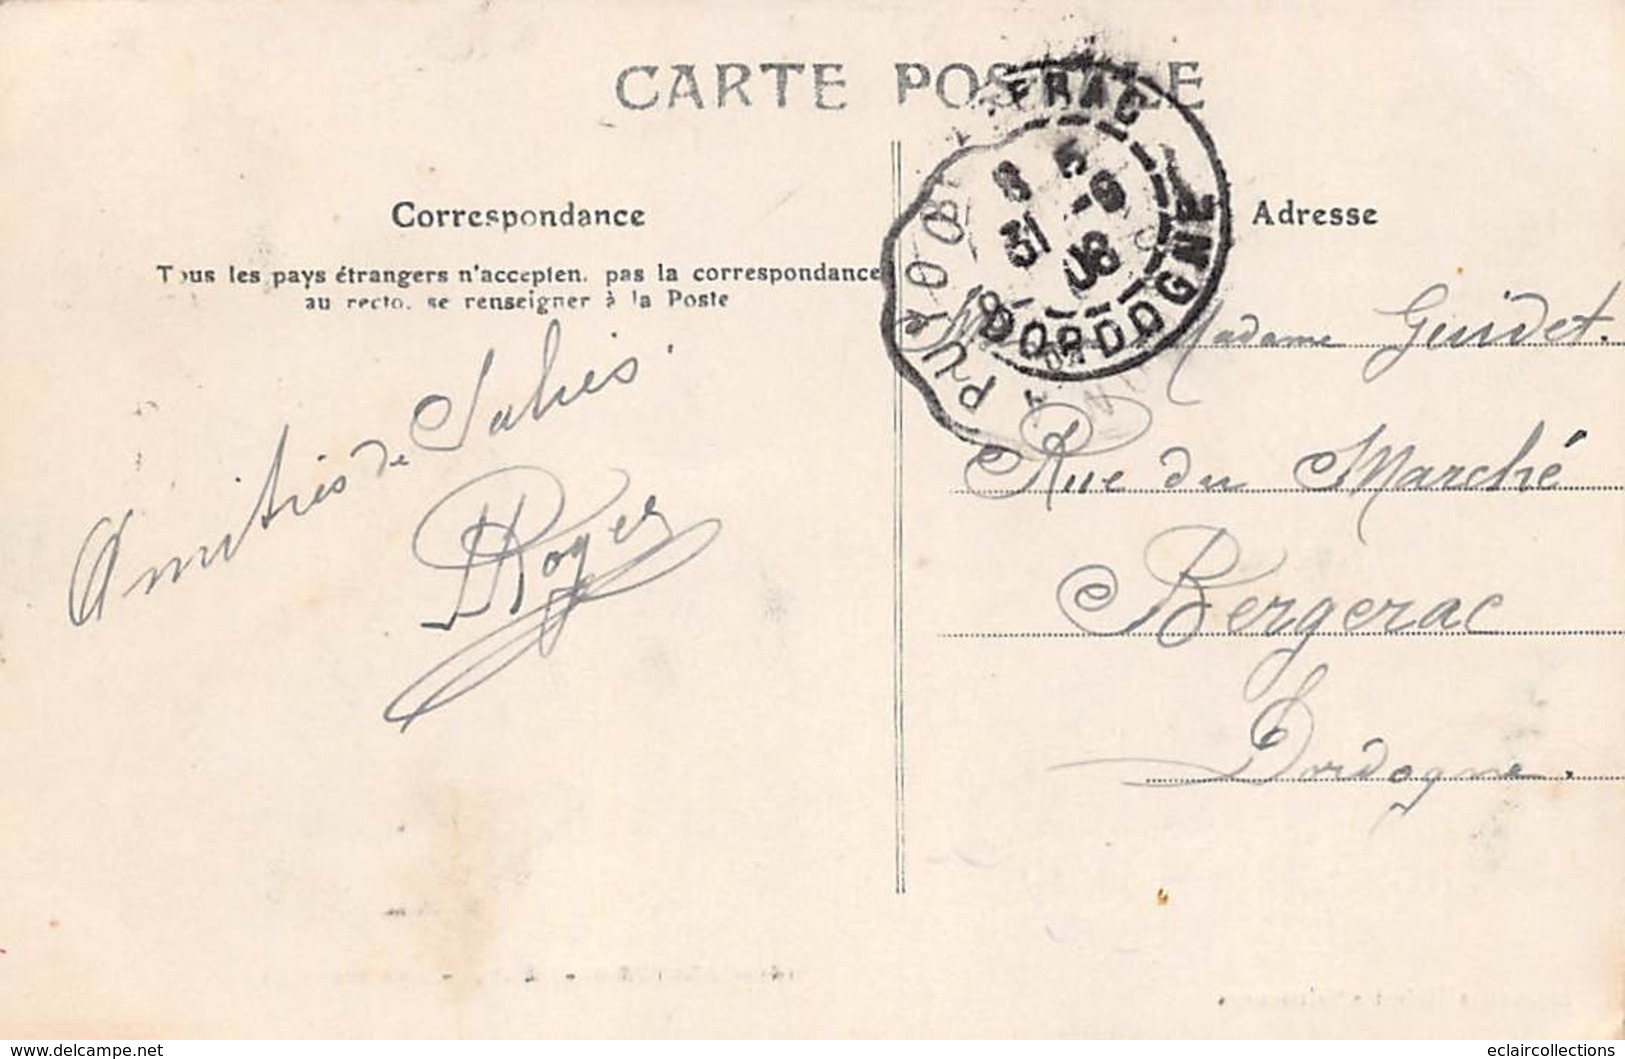 CARTE POSTALE
Correspondance
Tous les pays étrangers n'acceptent pas la correspondance
au recto. se renseigner à la Poste
Adresse
BERGERAC
8 5
31 -8
08
DORDOGNE
Amitiés de Salies.
Roger
Madame Guidet.
Rue du Marché
Bergerac
Dordogne.
www.delcampe.net
eclaircollections